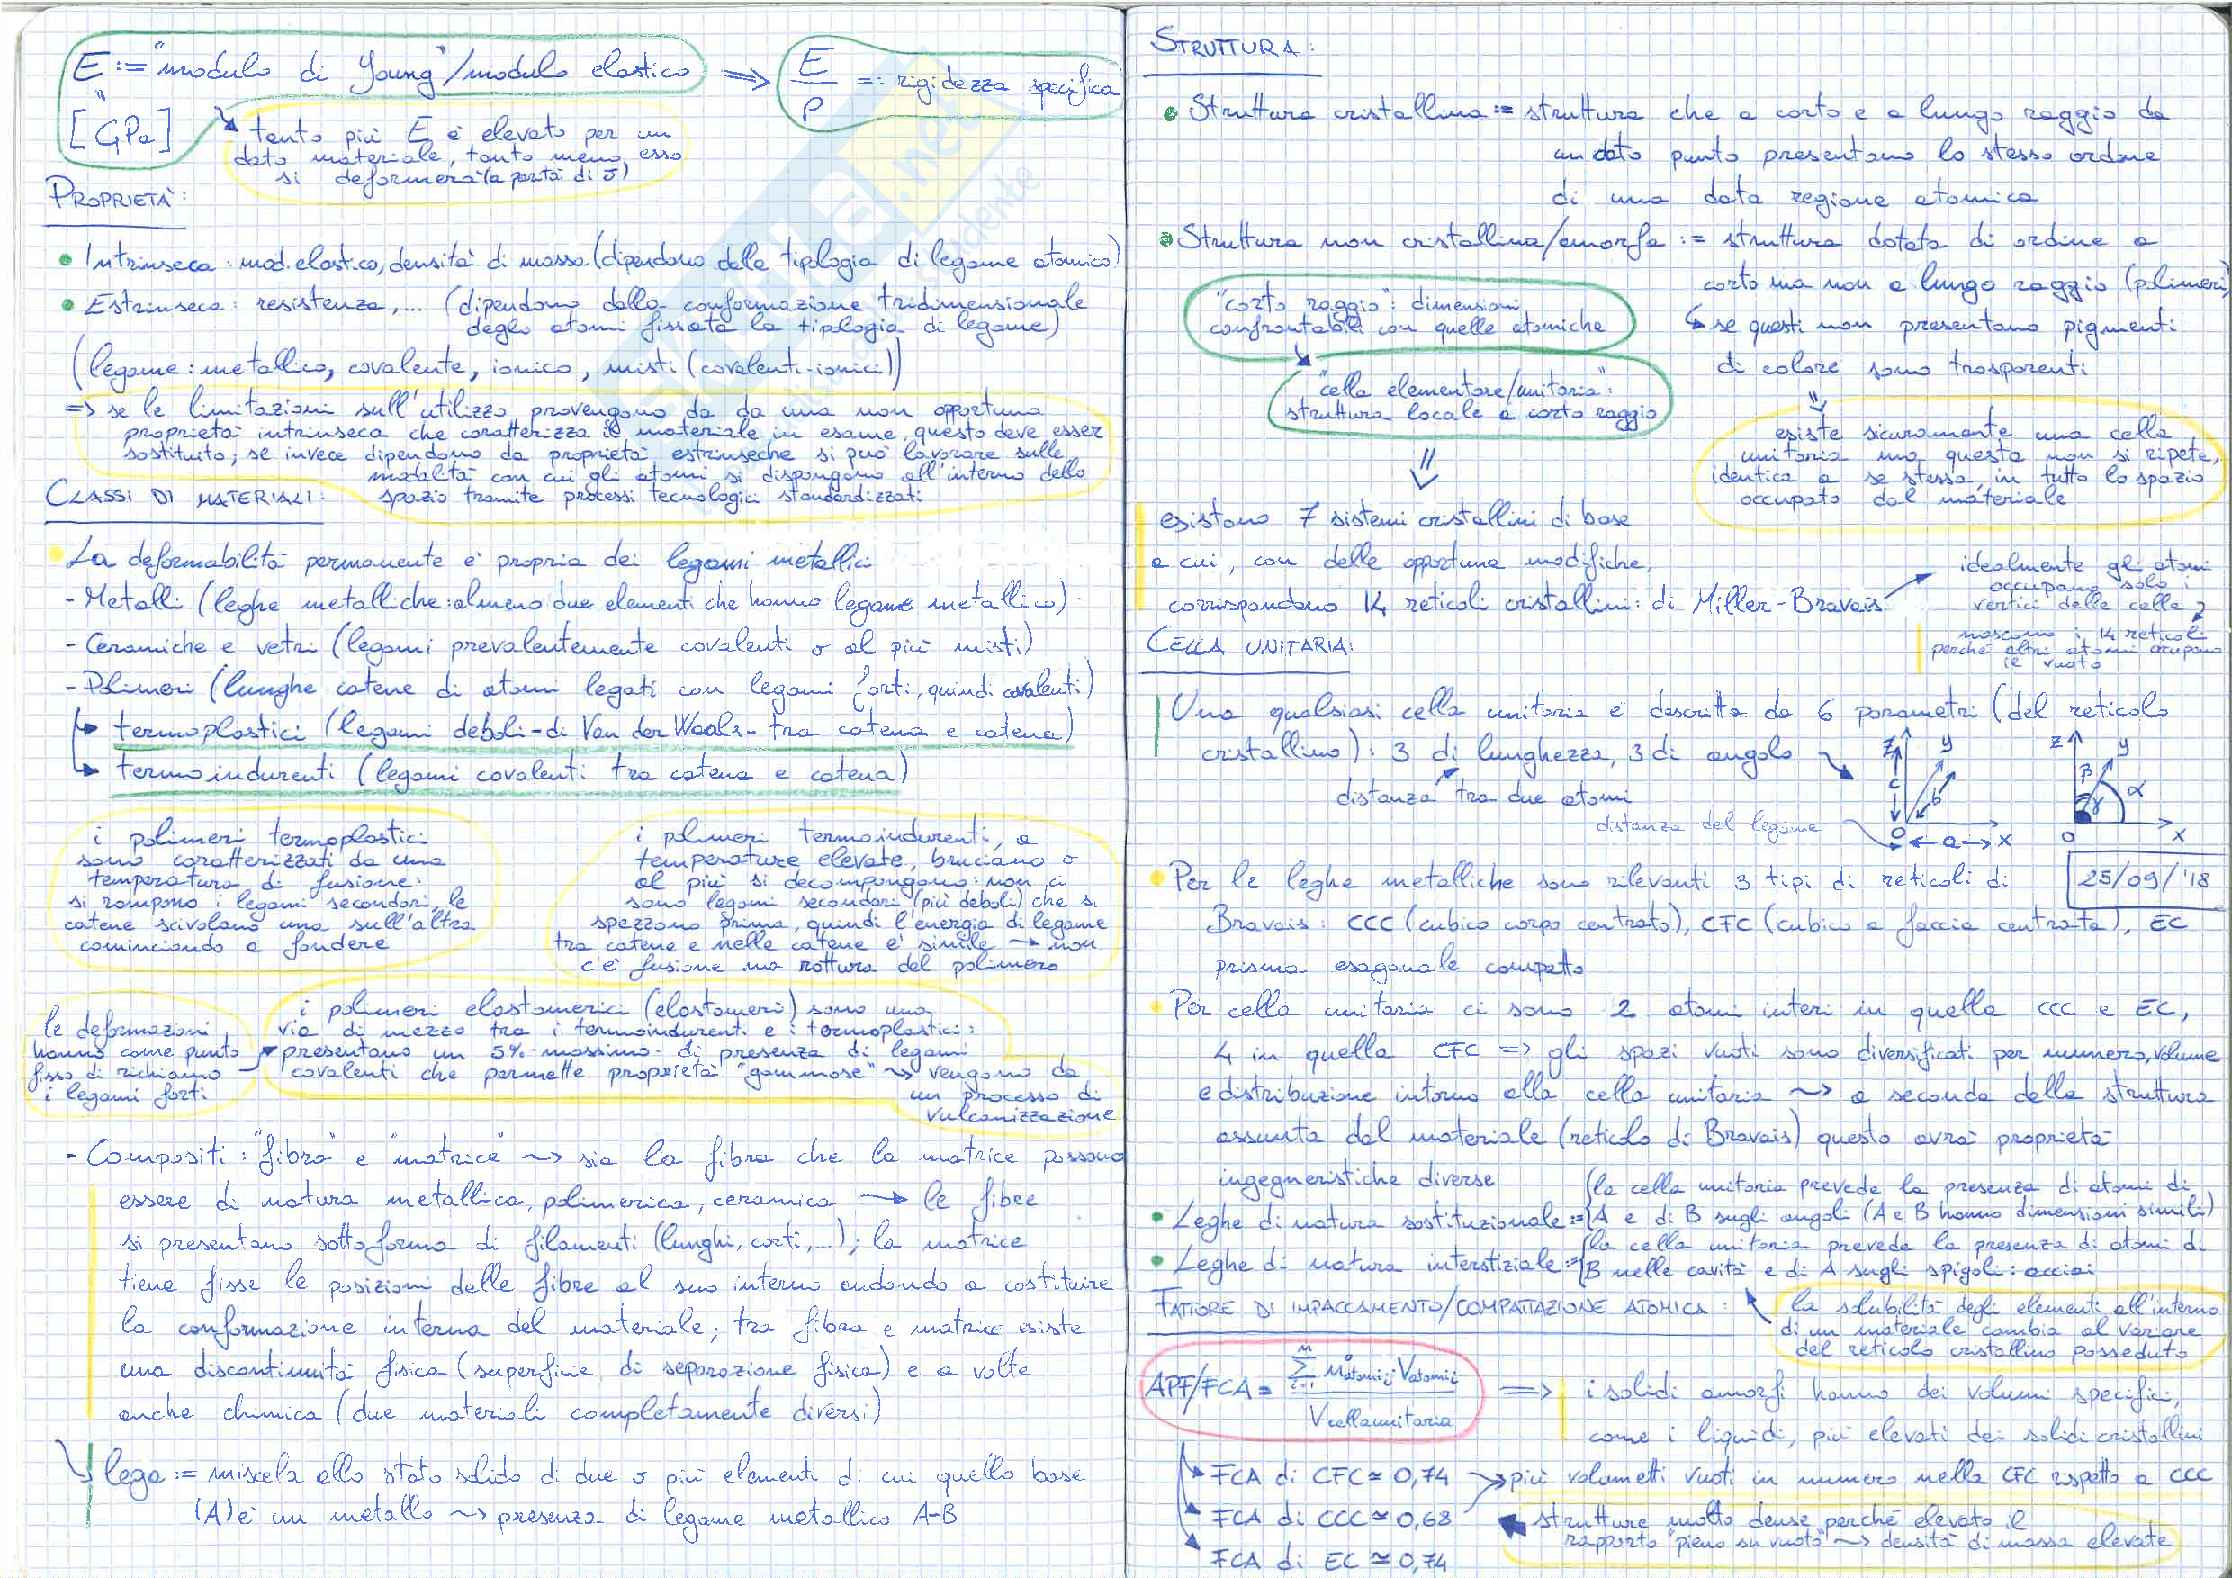 E := "modulo di Young"/modulo elastico => E/ρ =: rigidezza specifica
[GPa]
tanto più E è elevato per un
dato materiale, tanto meno esso
si deformerà (a parità di σ)
PROPRIETÀ:
• Intrinseca: mod. elastico, densità di massa (dipendono dalla tipologia di legame atomico)
• Estrinseca: resistenza,... (dipendono dalla conformazione tridimensionale
degli atomi fissata la tipologia di legame)
(legame: metallico, covalente, ionico, misti (covalenti-ionici))
=> se le limitazioni sull'utilizzo provengono da da una non opportuna
proprietà intrinseca che caratterizza il materiale in esame, questo deve esser
sostituito; se invece dipendono da proprietà estrinseche si può lavorare sulle
modalità con cui gli atomi si dispongono all'interno dello
CLASSI DI MATERIALI: spazio tramite processi tecnologici standardizzati
• La deformabilità permanente è propria dei legami metallici
- Metalli (leghe metalliche: almeno due elementi che hanno legame metallico)
- Ceramiche e vetri (legami prevalentemente covalenti o al più misti)
- Polimeri (lunghe catene di atomi legati con legami forti, quindi covalenti)
termoplastici (legami deboli-di Van der Waals- tra catena e catena)
termoindurenti (legami covalenti tra catena e catena)
i polimeri termoplastici
sono caratterizzati da una
temperatura di fusione:
si rompono i legami secondari, le
catene scivolano una sull'altra
cominciando a fondere
i polimeri termoindurenti, a
temperature elevate, bruciano o
al più si decompongono: non ci
sono legami secondari (più deboli) che si
spezzano prima, quindi l'energia di legame
tra catene e nelle catene è simile → non
c'è fusione ma rottura del polimero
le deformazioni
hanno come punto
fisso di richiamo
i legami forti
i polimeri elastomerici (elastomeri) sono una
via di mezzo tra i termoindurenti e i termoplastici:
presentano un 5% massimo di presenza di legami
covalenti che permette proprietà "gommose" ~> vengono da
un processo di
vulcanizzazione
- Compositi: "fibra" e "matrice" ~> sia la fibra che la matrice possono
essere di natura metallica, polimerica, ceramica → le fibre
si presentano sotto forma di filamenti (lunghi, corti,...); la matrice
tiene fisse le posizioni delle fibre al suo interno andando a costituire
la conformazione interna del materiale; tra fibra e matrice esiste
una discontinuità fisica (superficie di separazione fisica) e a volte
anche chimica (due materiali completamente diversi)
lega := miscela allo stato solido di due o più elementi di cui quello base
(A) è un metallo ~> presenza di legame metallico A-B
STRUTTURA:
• Struttura cristallina := struttura che a corto e a lungo raggio da
un dato punto presentano lo stesso ordine
di una data regione atomica
• Struttura non cristallina/amorfa := struttura dotata di ordine a
corto ma non a lungo raggio (polimeri)
"corto raggio": dimensioni
confrontabili con quelle atomiche
se questi non presentano pigmenti
di colore sono trasparenti
"cella elementare/unitaria":
struttura locale a corto raggio
esiste sicuramente una cella
unitaria ma questa non si ripete,
identica a se stessa, in tutto lo spazio
occupato dal materiale
esistono 7 sistemi cristallini di base
a cui, con delle opportune modifiche,
corrispondono 14 reticoli cristallini: di Miller-Bravais
idealmente gli atomi
occupano solo i
vertici delle celle
nascono i 14 reticoli
perché altri atomi occupano
il vuoto
CELLA UNITARIA:
Una qualsiasi cella unitaria è descritta da 6 parametri (del reticolo
cristallino): 3 di lunghezza, 3 di angolo
distanza tra due atomi
distanza del legame
z y c b o a x
z y β γ α o x
• Per le leghe metalliche sono rilevanti 3 tipi di reticoli di
25/09/'18
Bravais: CCC (cubico corpo centrato), CFC (cubico a faccia centrata), EC
prisma esagonale compatto
• Per cella unitaria ci sono 2 atomi interi in quella CCC e EC,
4 in quella CFC => gli spazi vuoti sono diversificati per numero, volume
e distribuzione intorno alla cella unitaria ~> a seconda della struttura
assunta dal materiale (reticolo di Bravais) questo avrà proprietà
ingegneristiche diverse
• Leghe di natura sostituzionale := {la cella unitaria prevede la presenza di atomi di
A e di B sugli angoli (A e B hanno dimensioni simili)
• Leghe di natura interstiziale := {la cella unitaria prevede la presenza di atomi di
B nelle cavità e di A sugli spigoli: acciai
FATTORE DI IMPACCAMENTO/COMPATTAZIONE ATOMICA:
la solubilità degli elementi all'interno
di un materiale cambia al variare
del reticolo cristallino posseduto
APF/FCA = Σ n°atomi,i Vatomi,i / Vcella unitaria
=> i solidi amorfi hanno dei volumi specifici,
come i liquidi, più elevati dei solidi cristallini
FCA di CFC ≃ 0,74 → più volumetti vuoti in numero nella CFC rispetto a CCC
FCA di CCC ≃ 0,68
FCA di EC ≃ 0,74
strutture molto dense perché elevato il
rapporto "pieno su vuoto" ~> densità di massa elevate